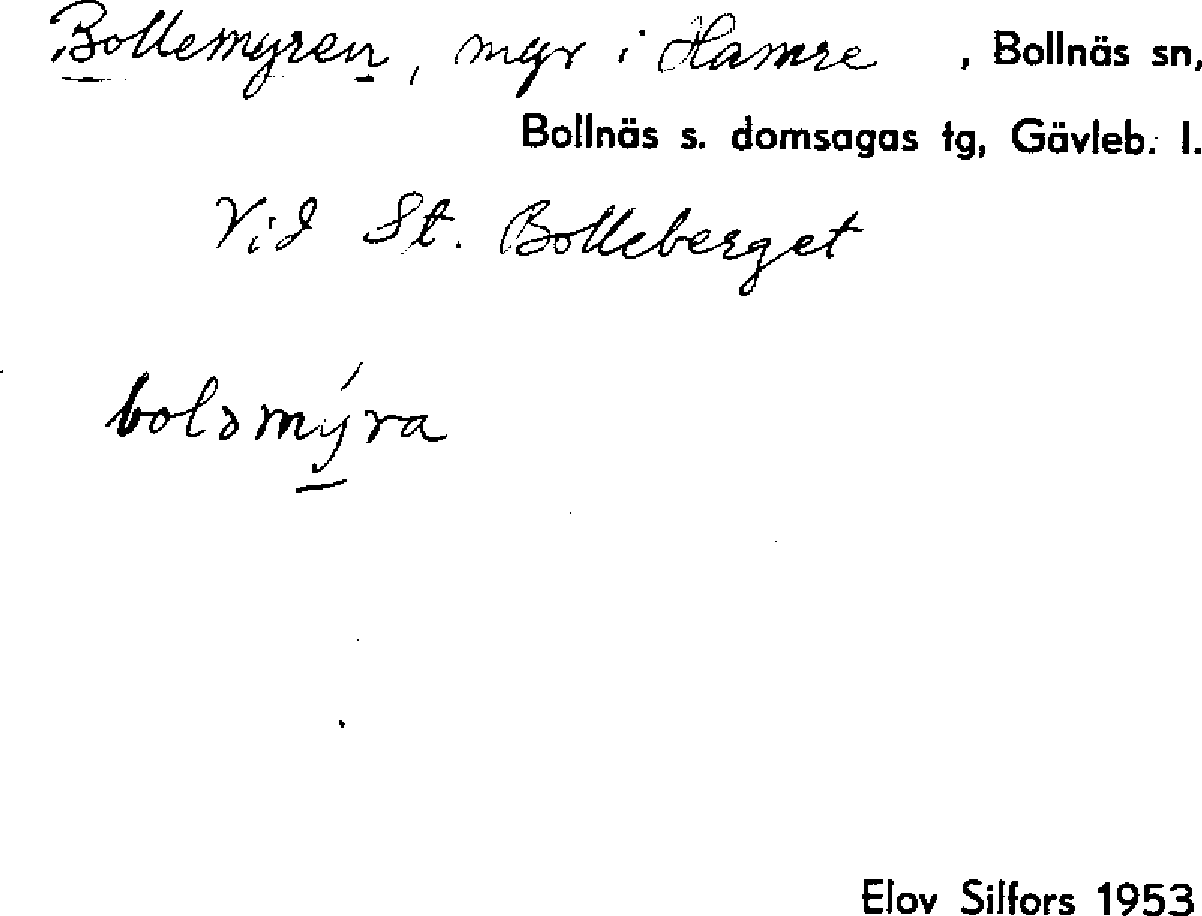 Bollemyren, myr i Hamre, Bollnäs sn,
Bollnäs s. domsagas tg, Gävleb. l.
Vid St. Bolleberget
boləmýra
Elov Silfors 1953